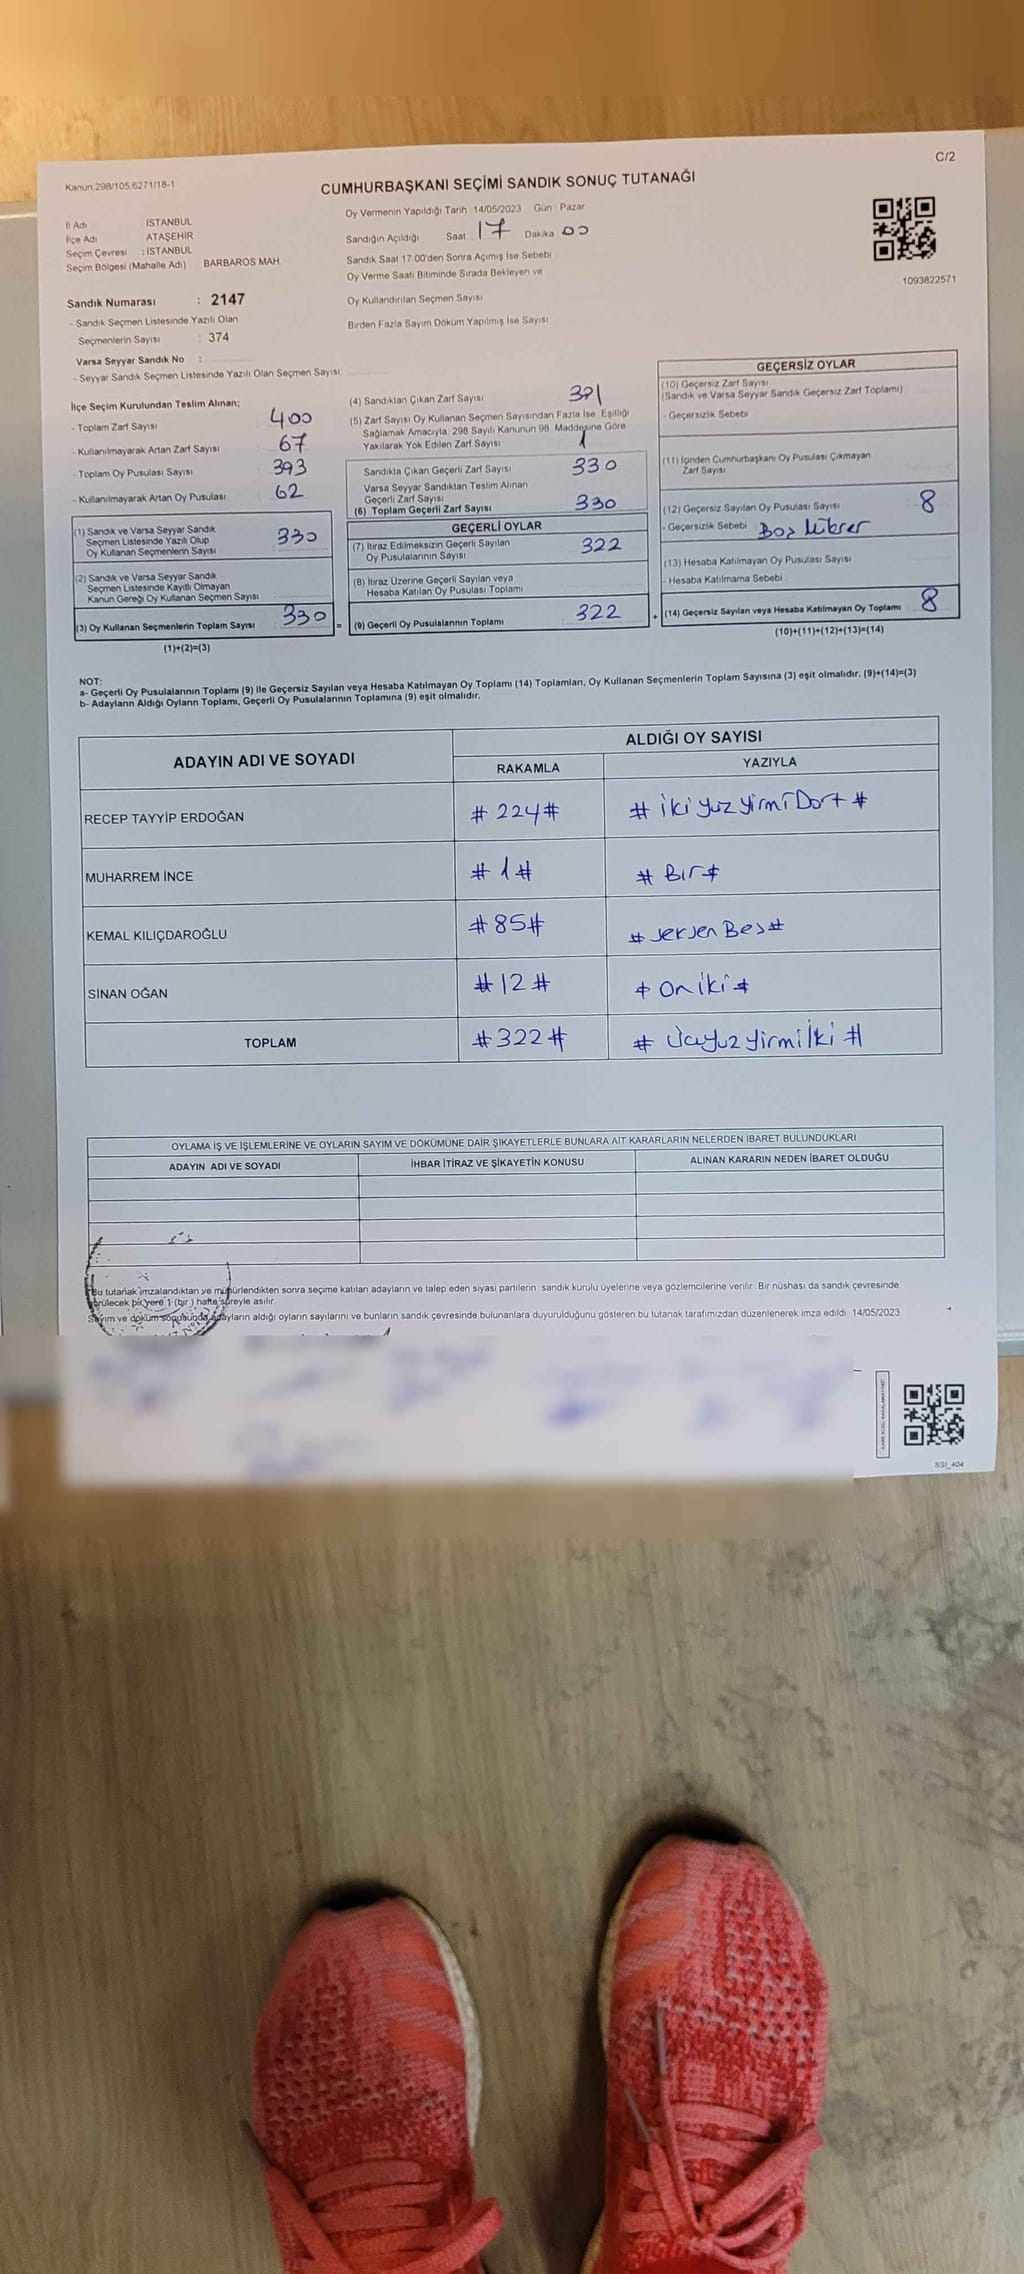 C/2
Kanun:298/105,6271/18-1
CUMHURBAŞKANI SEÇİMİ SANDIK SONUÇ TUTANAĞI
İl Adı : İSTANBUL
İlçe Adı : ATAŞEHİR
Seçim Çevresi : İSTANBUL
Seçim Bölgesi (Mahalle Adı) BARBAROS MAH.
Oy Vermenin Yapıldığı Tarih : 14/05/2023 Gün : Pazar
Sandığın Açıldığı Saat : 17 Dakika : 00
Sandık Saat 17:00'den Sonra Açılmış İse Sebebi
Oy Verme Saati Bitiminde Sırada Bekleyen ve
Oy Kullandırılan Seçmen Sayısı
Birden Fazla Sayım Döküm Yapılmış İse Sayısı
1093822571
Sandık Numarası : 2147
- Sandık Seçmen Listesinde Yazılı Olan
Seçmenlerin Sayısı : 374
Varsa Seyyar Sandık No :
- Seyyar Sandık Seçmen Listesinde Yazılı Olan Seçmen Sayısı:
İlçe Seçim Kurulundan Teslim Alınan;
- Toplam Zarf Sayısı : 400
- Kullanılmayarak Artan Zarf Sayısı : 67
- Toplam Oy Pusulası Sayısı : 393
- Kullanılmayarak Artan Oy Pusulası : 62
(1) Sandık ve Varsa Seyyar Sandık
Seçmen Listesinde Yazılı Olup
Oy Kullanan Seçmenlerin Sayısı 330
(2) Sandık ve Varsa Seyyar Sandık
Seçmen Listesinde Kayıtlı Olmayan
Kanun Gereği Oy Kullanan Seçmen Sayısı
(3) Oy Kullanan Seçmenlerin Toplam Sayısı 330 =
(1)+(2)=(3)
(4) Sandıktan Çıkan Zarf Sayısı
(5) Zarf Sayısı Oy Kullanan Seçmen Sayısından Fazla İse, Eşitliği
Sağlamak Amacıyla, 298 Sayılı Kanunun 98. Maddesine Göre
Yakılarak Yok Edilen Zarf Sayısı 1
Sandıkta Çıkan Geçerli Zarf Sayısı 330
Varsa Seyyar Sandıktan Teslim Alınan
Geçerli Zarf Sayısı
(6) Toplam Geçerli Zarf Sayısı 330
GEÇERLİ OYLAR
(7) İtiraz Edilmeksizin Geçerli Sayılan
Oy Pusulalarının Sayısı 322
(8) İtiraz Üzerine Geçerli Sayılan veya
Hesaba Katılan Oy Pusulası Toplamı
(9) Geçerli Oy Pusulalarının Toplamı 322 +
GEÇERSİZ OYLAR
(10) Geçersiz Zarf Sayısı
(Sandık ve Varsa Seyyar Sandık Geçersiz Zarf Toplamı)
- Geçersizlik Sebebi
(11) İçinden Cumhurbaşkanı Oy Pusulası Çıkmayan
Zarf Sayısı
(12) Geçersiz Sayılan Oy Pusulası Sayısı 8
- Geçersizlik Sebebi Boş
(13) Hesaba Katılmayan Oy Pusulası Sayısı
- Hesaba Katılmama Sebebi :
(14) Geçersiz Sayılan veya Hesaba Katılmayan Oy Toplamı 8
(10)+(11)+(12)+(13)=(14)
NOT:
a- Geçerli Oy Pusulalarının Toplamı (9) ile Geçersiz Sayılan veya Hesaba Katılmayan Oy Toplamı (14) Toplamları, Oy Kullanan Seçmenlerin Toplam Sayısına (3) eşit olmalıdır. (9)+(14)=(3)
b- Adayların Aldığı Oyların Toplamı, Geçerli Oy Pusulalarının Toplamına (9) eşit olmalıdır.
ADAYIN ADI VE SOYADI ALDIĞI OY SAYISI
RAKAMLA YAZIYLA
RECEP TAYYİP ERDOĞAN # 224# # İki yuz yirmi Dort #
MUHARREM İNCE # 1 # # Bır #
KEMAL KILIÇDAROĞLU # 85# # seksen Beş #
SİNAN OĞAN # 12 # # On İki #
TOPLAM # 322 # # Üçyuz yirmi İki #
OYLAMA İŞ VE İŞLEMLERİNE VE OYLARIN SAYIM VE DÖKÜMÜNE DAİR ŞİKAYETLERLE BUNLARA AİT KARARLARIN NELERDEN İBARET BULUNDUKLARI
ADAYIN ADI VE SOYADI İHBAR İTİRAZ VE ŞİKAYETİN KONUSU ALINAN KARARIN NEDEN İBARET OLDUĞU
Bu tutanak imzalandıktan ve mühürlendikten sonra seçime katılan adayların ve talep eden siyasi partilerin sandık kurulu üyelerine veya gözlemcilerine verilir. Bir nüshası da sandık çevresinde
görülecek bir yere 1 (bir) hafta süreyle asılır.
Sayım ve döküm sonucunda adayların aldığı oyların sayılarını ve bunların sandık çevresinde bulunanlara duyurulduğunu gösteren bu tutanak tarafımızdan düzenlenerek imza edildi. 14/05/2023
SSI_404